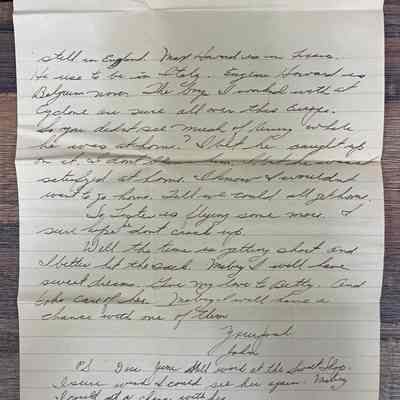 still in England. Max Howard is in France.
He use to be in Italy. Eugene Howard is
Belgium now. The boys I worked with at
Cyclone are sure all over there Europe.
So you didn't see much of Army while
he was at home? I bet he caught up
on it. We don't him, I bet he
satisfied at home. I know I wouldn't
want to go home. Tell we could all go home.
So is flying some more. I
sure hope don't crack up.
Well the time is getting short and
I better hit the sack. Maby I will have
sweet dreams. Give my love to Betty. And
take care of her. Maby I will have a
chance with one of them
Your pal
John
P.S. Does June still work at the Sweet Shop.
I sure wish I could see her again. Maby
I could get a chance with her